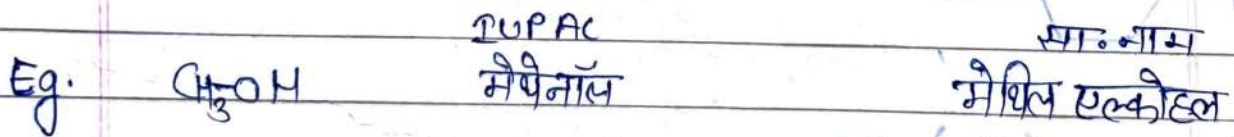 IUPAC सा॰ नाम
Eg. CH₃-OH मेथेनॉल मेथिल एल्कोहल